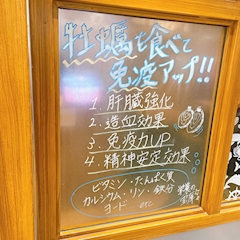 牡蠣を食べて
免疫アップ!!
1. 肝臓強化
2. 造血効果
3. 免疫力UP
4. 精神安定効果
ビタミン・たんぱく質
カルシウム・リン・鉄分
ヨード etc
栄養の
宝庫